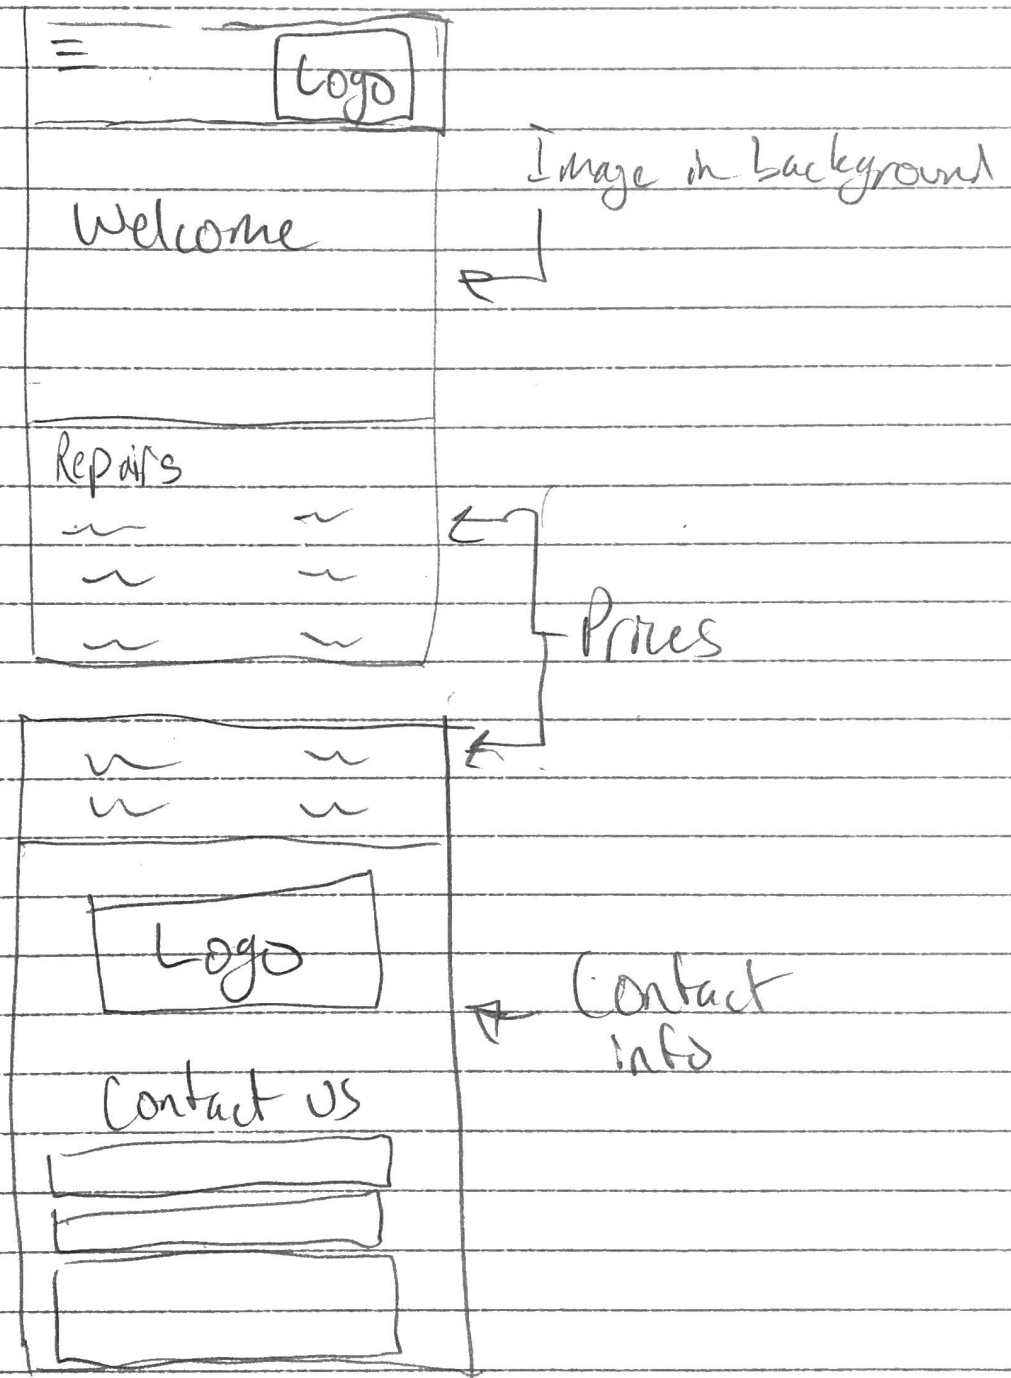 Logo
Image in background
Welcome
Repairs
Prices
Logo
Contact
info
Contact us